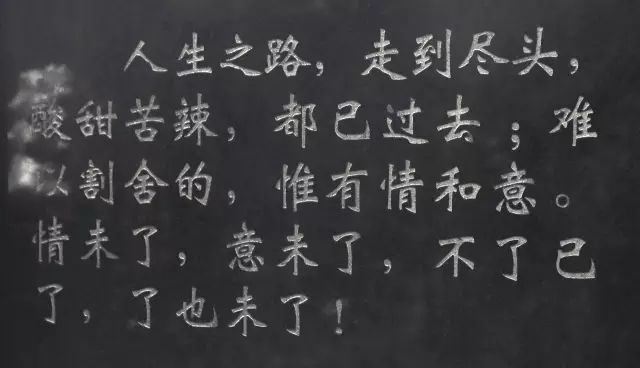 人生之路，走到尽头，
酸甜苦辣，都已过去；难
以割舍的，惟有情和意。
情未了，意未了，不了已
了，了也未了！